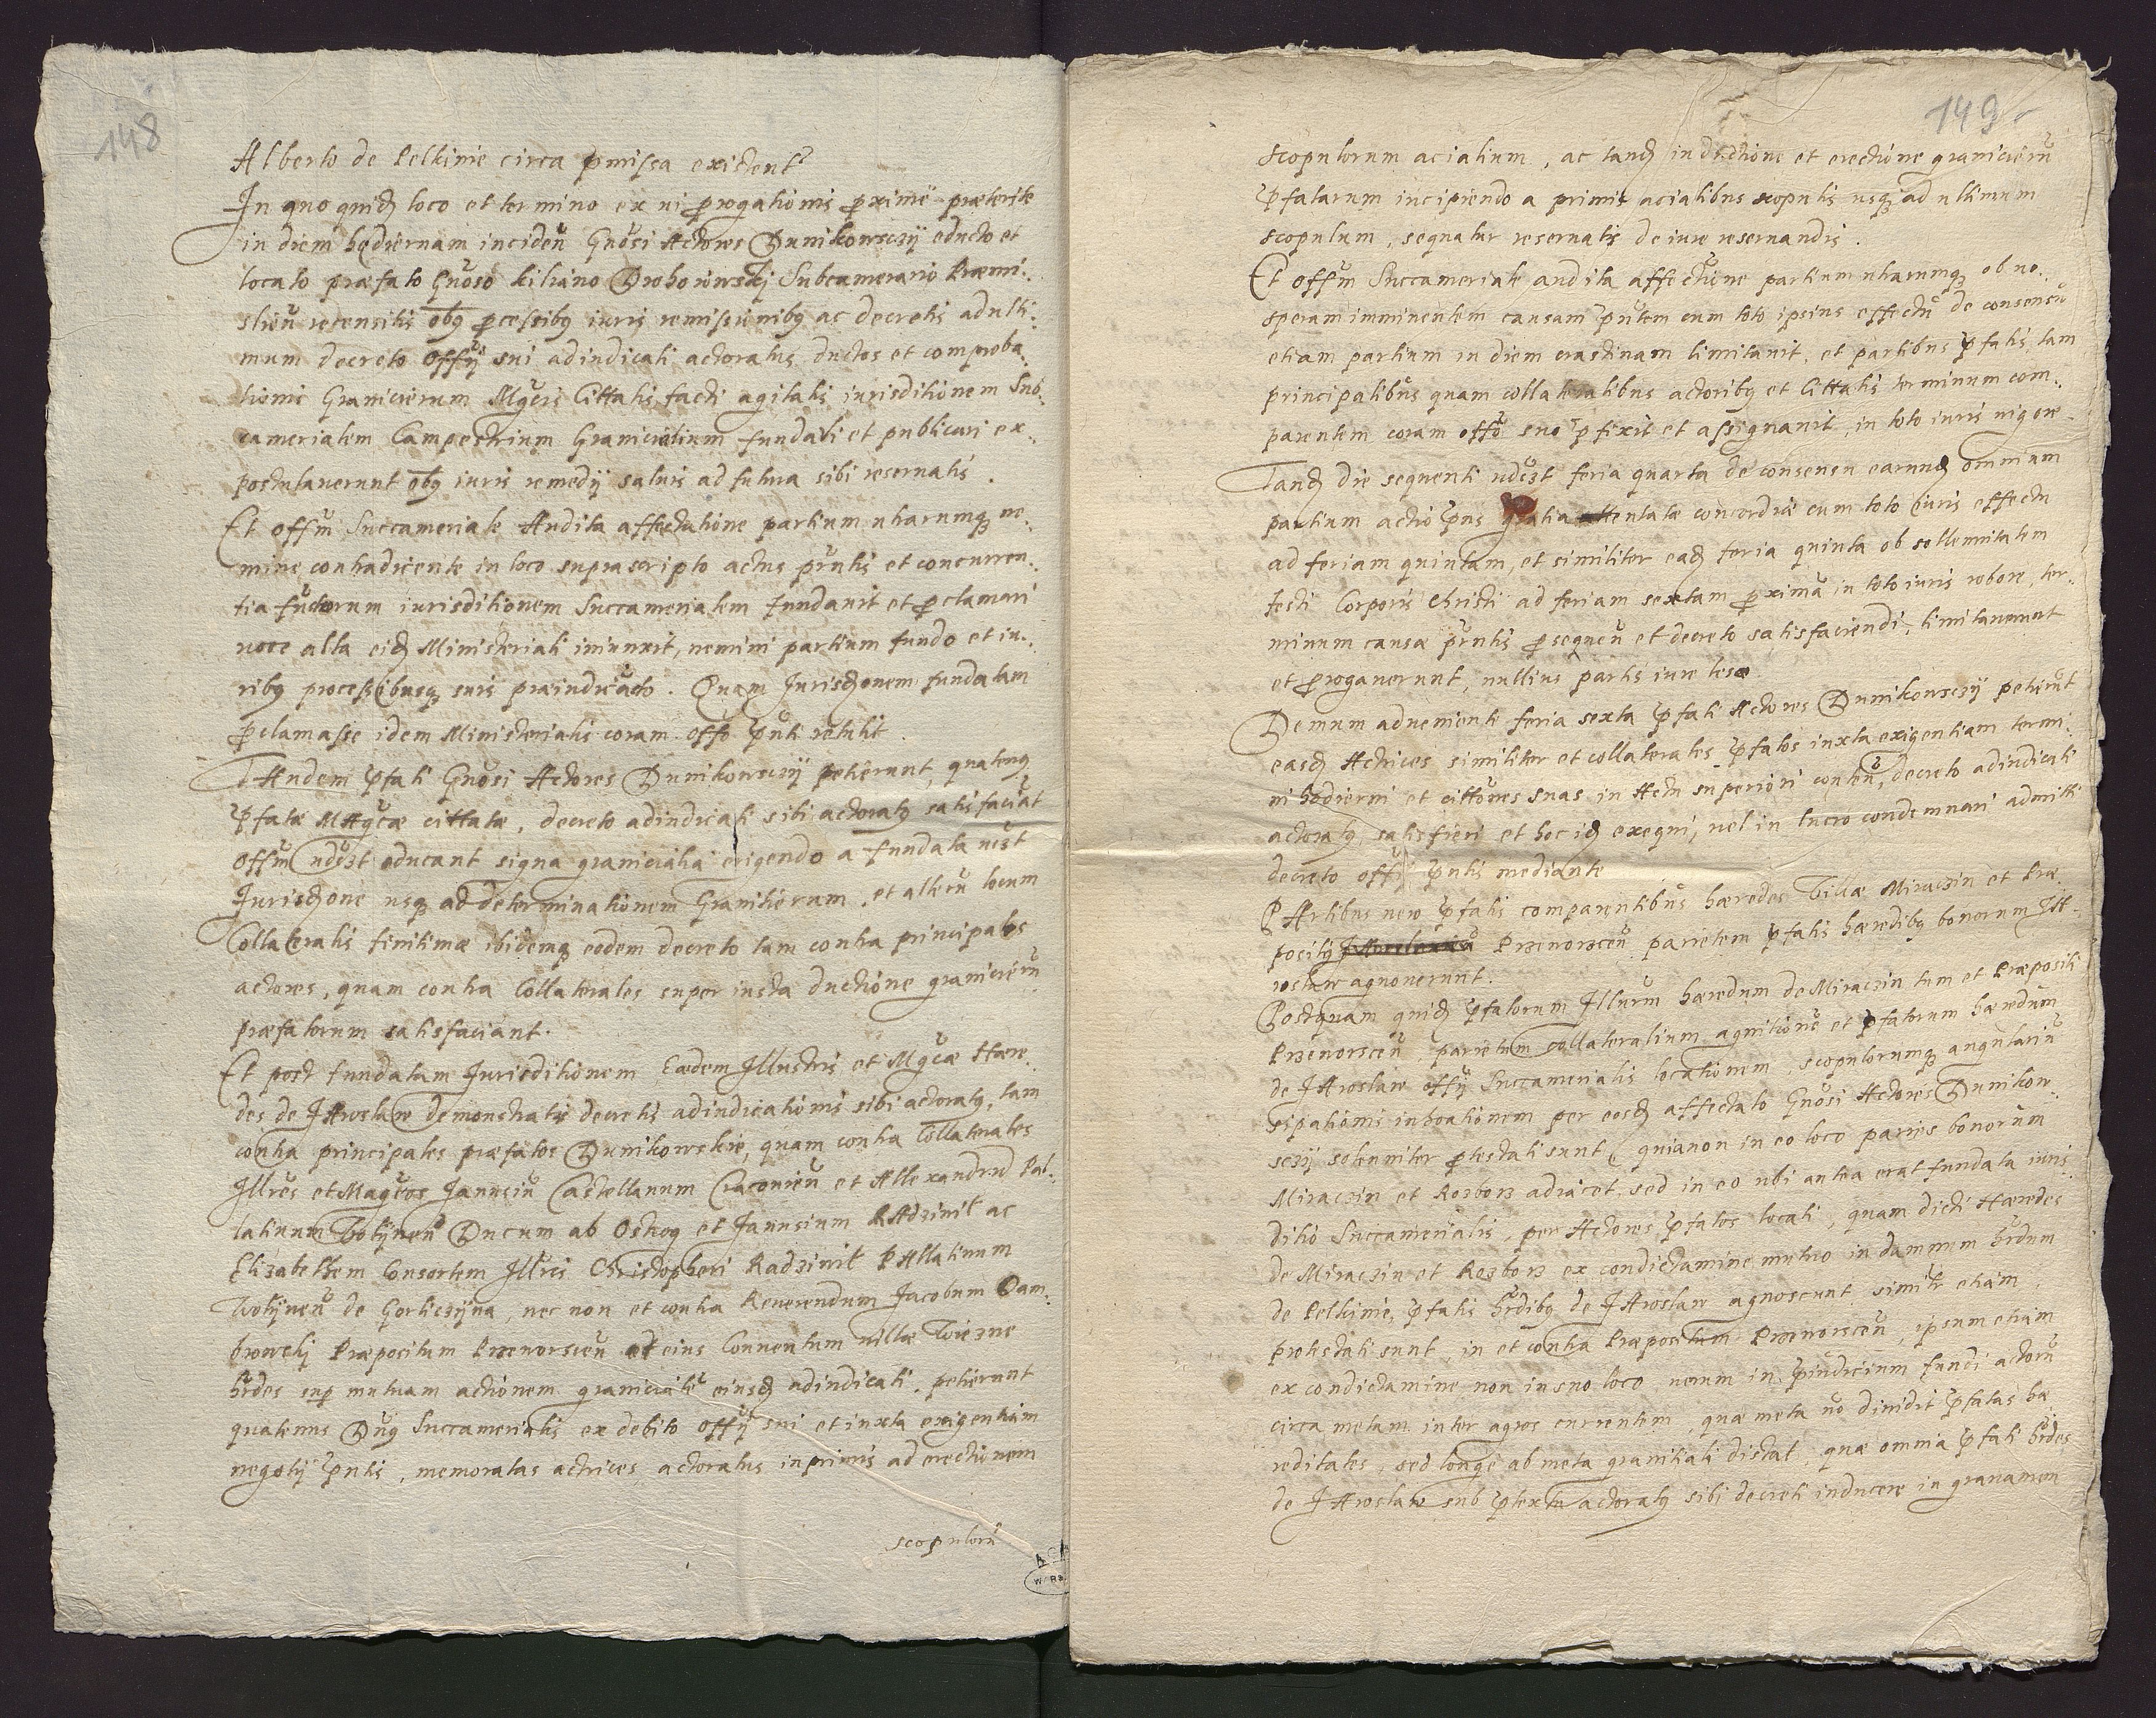 148
Alberto de Pelkinie circa pmissa existent
In quo quidȝ loco et termino ex vi prorogationis proximæ præteritæ
in diem hodiernam inciden Gnosi Actores Dunikowsczÿ educto et
locato præfato Gnoso Kiliano Drohoiowskj Subcamerario Præmi-
slien recensitis obȝ processibȝ iuris remissionibȝ ac decretis ad ulti-
mum decreto offÿ sui adiudicati actoratus ductos et comproba-
tionis Granicierum Mgcis Cittatis facti agitatis iurisditionem Sub-
camerialem Campestrium Granicialium fundari et publicari ex-
postulaverunt obȝ iuris remedÿ salvis ad futura sibi reservatis.
Et offm Succameriale Audita affectatione partium utrarumqȝ ne-
mine contradicente in loco suprascripto actus pntis et concurren-
tia fundorum iurisditionem Succamerialem fundavit et proclamari
voce alta eidȝ Ministeriali iniunxit, nemini partium fundo et iu-
ribȝ processibusqȝ suis præiudicando. Quam Jurisdȝonem fundatam
proclamasse idem Ministerialis coram offo pnti retulit.
TAndem pfati Gnosi Actores Dunikowsczÿ petierunt, quatenȝ
pfatæ MAgcæ cittatæ, decreto adiudicati sibi actoratȝ satisfaciat
offm vdȝt educant signa granicialia erigendo a fundata vȝt
Jurisdȝone usqȝ ad determinationem Granitierum, et alteru locum
Collateralis finitimæ ibidemqȝ eodem decreto tam contra principales
actores, quam contra Collaterales super iusta ductione granicieru
præfatorum satisfaciant.
Et post fundatam Jurisditionem Eædem Jllustris et Mgcæ Hære-
des de JAroslaw demonstratis decretis adiudicationis sibi actoratȝ, tam
contra principales præfatos Dunikowskie, quam contra Collaterales
Jllres et Magcos Janusiu Castellanum Cracovien et Allexandrud Pal-
latinum Volÿnen Ducum ab Ostrog et Janusium RAdzivil ac
Elizabethem Consortem Jllris Christopheri Radzivil PAllatinum
Volÿnen de Gorliczÿna, nec non et contra Reverendum Jacobum Dam-
browskj Præpositum Przevorscen et eius Conventum villæ Wiezne
hrdes sup mutuam actionem graniciale eiusdȝ adiudicati. petierunt
quatenus Dnȝ Succamerialis ex debito offÿ sui et iuxta exigentiam
negotÿ pntis, memoratas actrices actoratus inprimis ad erectionem
scopuloru

149
scopulorum acialium, ac tandȝ in ductione et erectione granicieru
pfatarum incipiendo a primis acialibus scopulis usqȝ ad ultimum
scopulum, sequatur reservatis de iure reservandis.
Et offm Succameriale audita affectatione partium utrarumqȝ ob ve-
speram imminentem causam pntem cum toto ipsius effectu de consensu
etiam partium in diem crastinam limitavit, et partibus pfatis tam
principalibus quam collateralibus actoribȝ et Cittatis terminum com-
parentem coram offo suo pfixit et assignavit, in toto iuris vigore.
Tandȝ die sequenti vdȝt feria quarta de consensu earundȝ omnium
partium actio pns gratia attentatæ concordiæ cum toto iuris effectu
ad feriam quintam, et similiter eadȝ feria quinta ob sollemnitatem
festi Corporis Christi ad feriam sextam proxima in toto iuris robore, ter-
minum causæ pntis prosequen et decreto satisfaciendi, limitaverunt
et prorogaverunt, nullius partis iure leso.
Demum adveniente feria sexta pfati Actores Dunikowsczÿ petierut
easdȝ Actrices similiter et collaterales pfatos iuxta exigentiam termi-
ni hodierni et cittones suas in Actu superiori conten, decreto adiudicati
actoratȝ, satisfieri et hoc idȝ exequi, vel in lucro condemnari admitti
decreto offi pntis mediante
PArtibus vero pfatis comparentibus hæredes Villæ Miraczin et Præ-
positÿ Przevorscen parietem pfatis hæredibȝ bonorum JA-
roslaw agnoverunt.
Postquam quidȝ pfatorum Jllurum hæredum de Miraczin tum et Præpositi
Przevorscen, parietum collateralium agnitione et pfatorum hæredum
de JAroslaw offÿ Succamerialis locationem, scopulorumqȝ angulariu
sipationis inchoationem per eosdȝ affectato Gnosi Actores Dunikow-
sczÿ solenniter protestati sunt quia non in eo loco paries bonorum
Miraczin et Rozborz adiacet, sed in eo ubi antea erat fundata iuris-
ditio Succamerialis, per Actores pfatos locati, quam dicti Hæredes
de Miraczin et Rozborz ex condictamine mutuo in damnum hrdum
de Pelkinie, pfatis hrdibȝ de JAroslaw agnoscunt, similr etiam
protestati sunt, in et contra Præpositum Przevorscen, ipsum etiam
ex condictamine non in suo loco verum in piudicium fundi actoru
circa metam inter agros currentem, quæ meta no dividit pfatas hæ-
reditates, sed longe ab meta granitiali distat, quæ omnia pfati hrdes
de JAroslaw sub ptextu actoratȝ sibi decreti inducere in gravamen